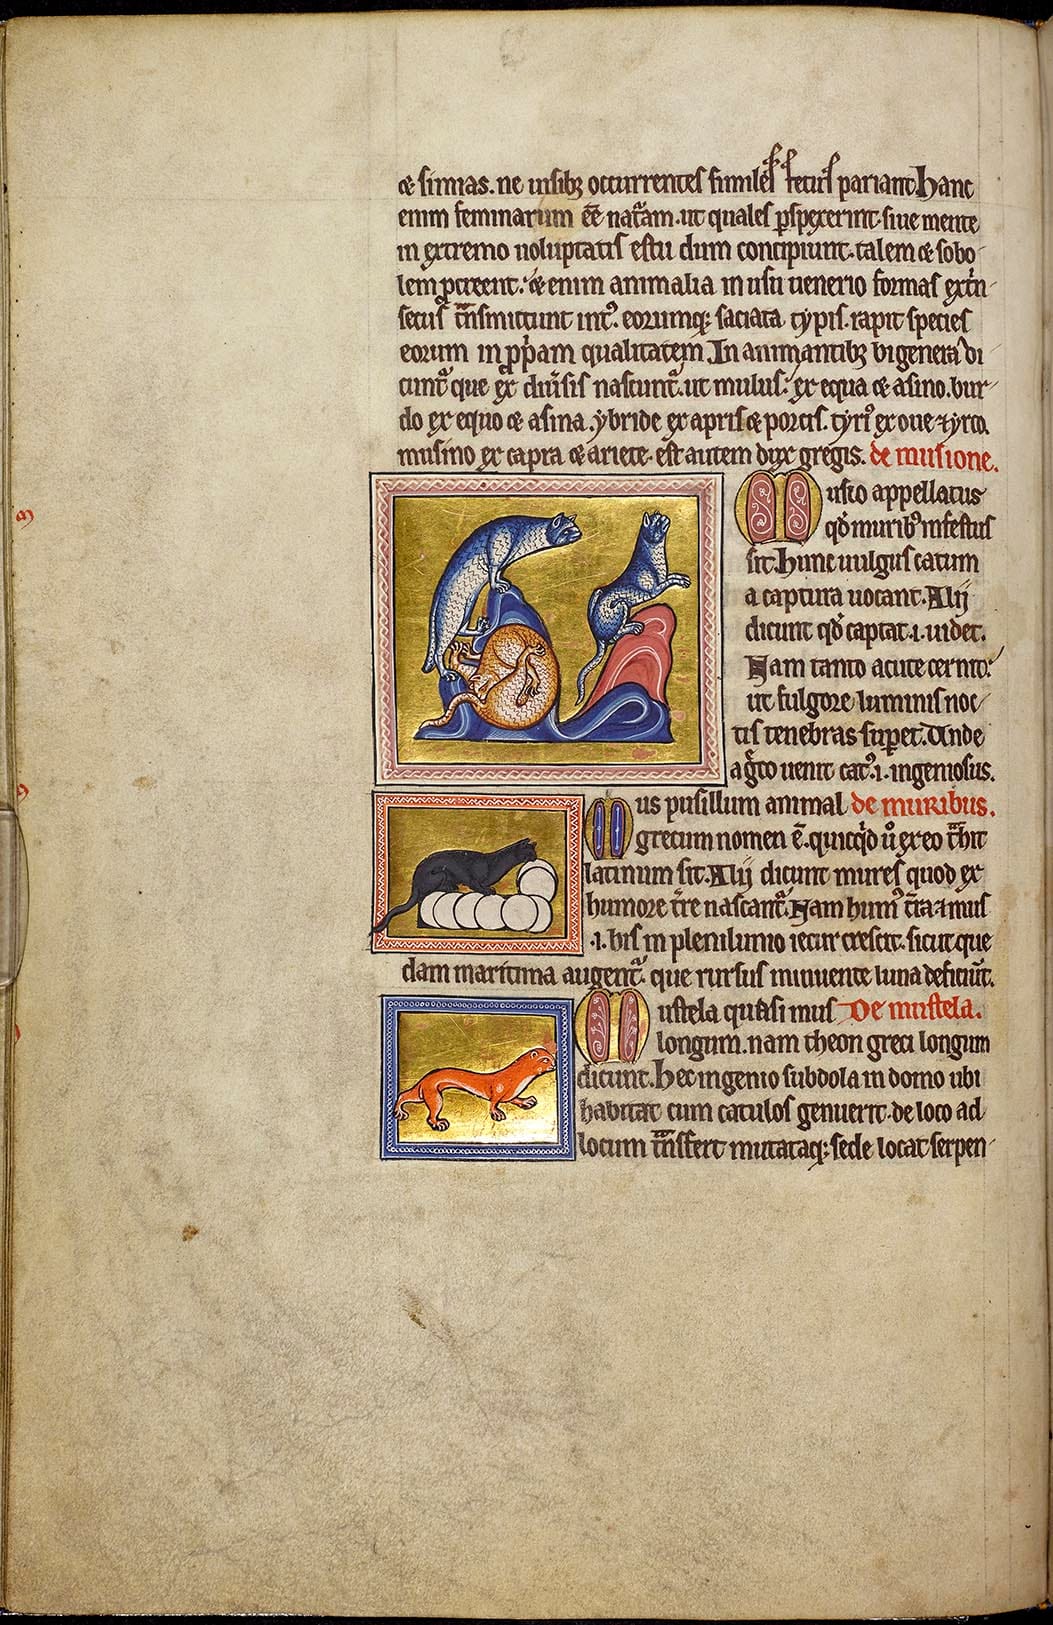 ⁊ simias. ne uisibȝ occurrentes similes fetus pariant. Hanc
enim feminarum eē nat᷑am. ut quales ꝑspexerint. siue mente
in extremo uoluptatis estu dum concipiunt. talem ⁊ sobo
lem ꝓcreent. ⁊ enim animalia in usu uenerio formas ext̉n
secus t᷑nsmittunt int᷑. eorumq; saciata typis. rapit species
eorum in ꝓp̉am qualitatem. In animantibȝ bigenera di
cunt᷑ que ex diu̾sis nascunt᷑. ut mulus: ex equa ⁊ asino. bur
do ex equo ⁊ asina. ybride ex apris ⁊ porcis. tyri᷒ ex oue ⁊ yrco.
musino ex capra ⁊ ariete. est autem dux gregis. de musione.
Musio appellatus
qd̕ murib᷒ infestus
sit. Hunc uulgus catum
a captura uocant. Alij
dicunt qd̕ captat .i. uidet.
Nam tanto acute cernit:
ut fulgore luminis noc
tis tenebras suꝑet. Unde
a g̾co uenit cat᷒ .i. ingeniosus.
Mus pusillum animal de muribus.
grecum nomen ē. quicq̇d u̾ ex eo t᷑hit
latinum fit. Alij dicunt mures quod ex
humore t̾re nascant᷑. Nam hum᷒ t̾ra ⁊ mus
.i. his in plenilunio iecur crescit. sicut que
dam maritima augent᷑. que rursus minuente luna deficiu̅t.
Mustela quasi mus De mustela.
longum. nam theon greci longum
dicunt. Hec ingenio subdola in domo ubi
habitat cum catulos genuerit. de loco ad
locum t᷑nsfert mutataq; sede locat serpen